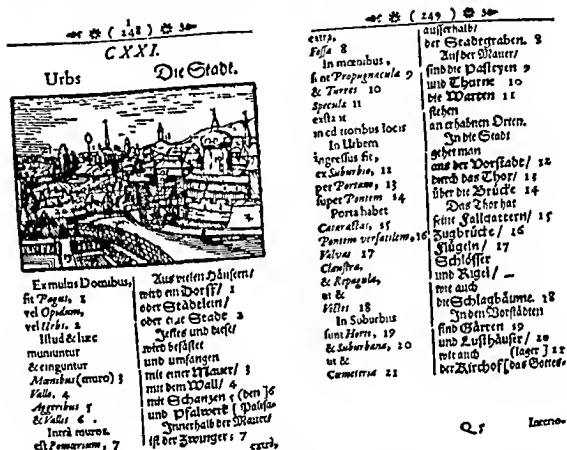 ( 248 )
CXXI.
Urbs
Die Stadt.
Ex multis Domibus,
fit Pagus, 1
vel Oppidum,
vel Urbs. 2
Istud & hæc
muniuntur
& cinguntur
Mœnibus (muro) 3
Vallo, 4
Aggeribus 5
& Vallis 6.
Intrà muros
est Pomœrium, 7
Aus vielen Häusern/
wird ein Dorff/ 1
oder Städtlein/
oder eine Stadt 2
Jenes und dieses
wird befästiget
und umfangen
mit einer Mauer/ 3
mit dem Wall/ 4
mit Schanzen 5 (den ]6
und Pfalwerk [ Palisa-
Innerhalb der Mauer
ist der Zwinger; 7
extrà,
( 249 )
extrà,
Fossa 8
In mœnibus,
sunt Propugnacula 9
& Turres 10
Specula 11
In Urbem
ingressus fit,
ex Suburbio, 12
per Portam, 13
super Pontem 14
Porta habet
Cataractas, 15
Pontem versatilem, 16
Valvas 17
Claustra,
& Repagula,
ut &
Vectes 18
In Suburbiis
sunt Horti, 19
& Suburbana, 20
ut &
Cœmeteria 21
ausserhalb/
der Stadtgraben. 8
Auf der Mauer
sind die Pasteyen 9
und Thürne 10
die Warten 11
stehen
an erhabnen Orten.
In die Stadt
gehet man
aus der Vorstadt/ 12
durch das Thor/ 13
über die Brücke 14
Das Thor hat
seine Fallgattern/ 15
Zugbrücke/ 16
Flügeln/ 17
Schlösser
und Rigel/
wie auch
die Schlagbäume. 18
In den Vorstädten
sind Gärten 19
und Lusthäuser/ 20
wie auch (lager ] 21
der Kirchof [das Gottes-
Q 5
Interio-